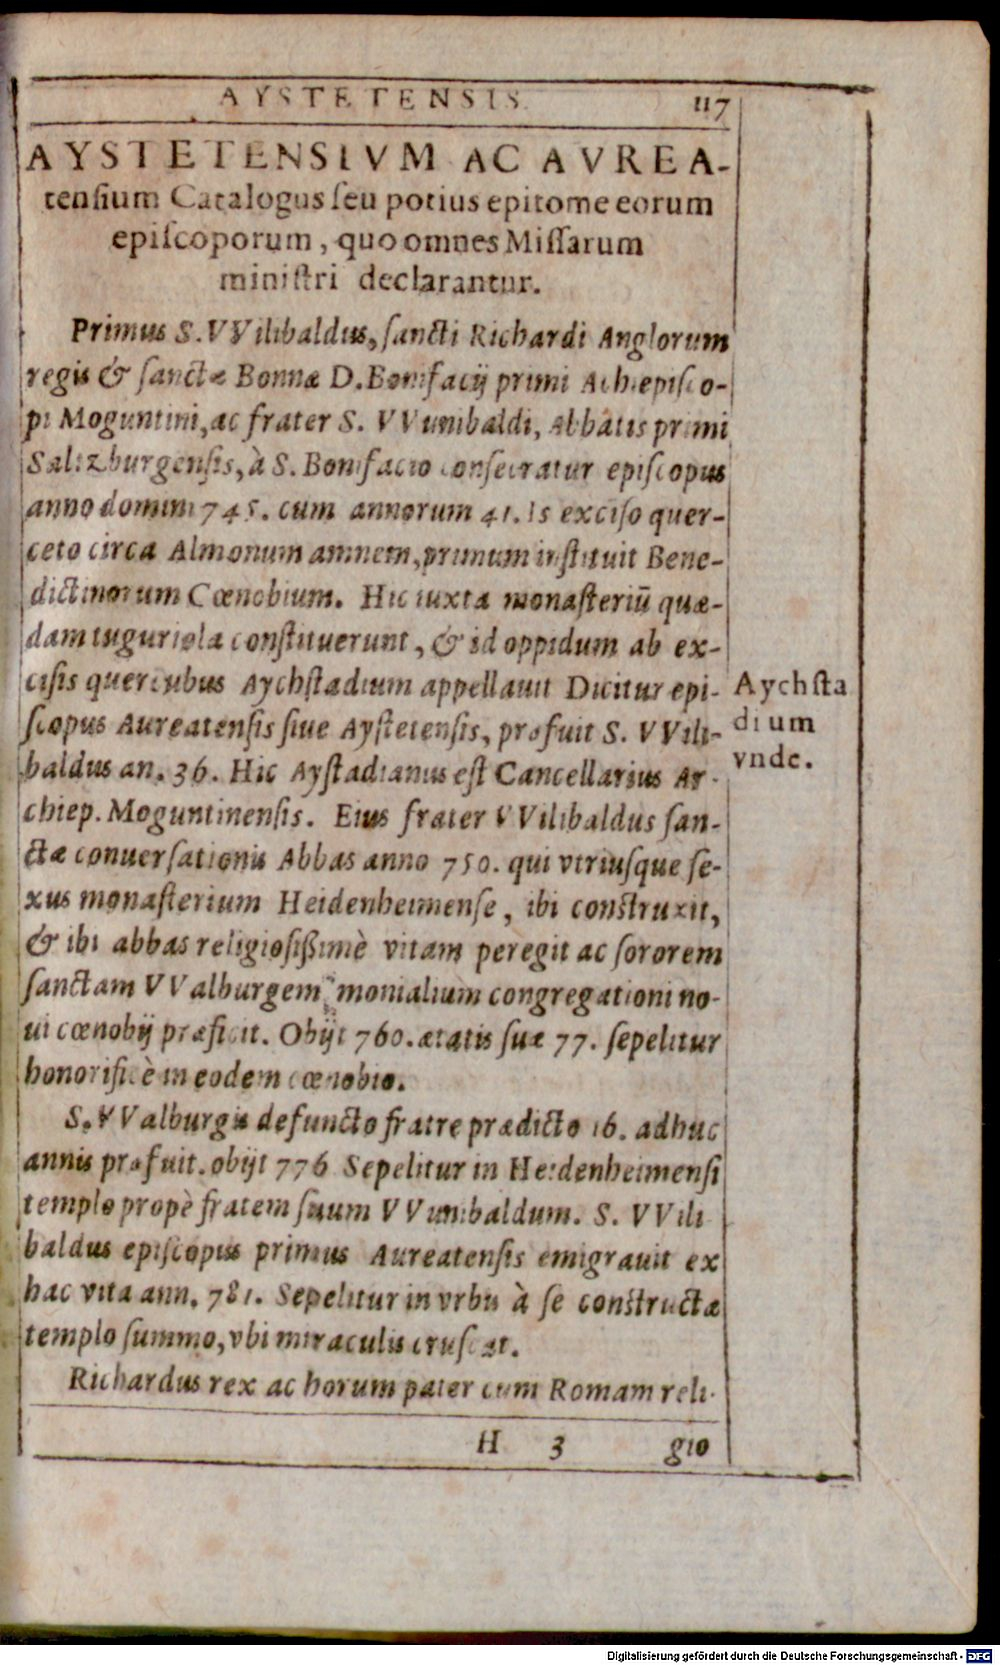 AYSTETENSIS. 117
AYSTETENSIVM AC AVREA-
tensium Catalogus seu potius epitome eorum
episcoporum, quo omnes Missarum
ministri declarantur.
Primus S. VVilibaldus, sancti Richardi Anglorum
regis & sanctæ Bonnæ D. Bonifacij primi Achiepisco-
pi Moguntini, ac frater S. VVunibaldi, Abbatis primi
Saltzburgensis, à S. Bonifacio consecratur episcopus
anno domini 745. cum annorum 41. Is exciso quer-
ceto circa Almonum amnem, primum instituit Bene-
dictinorum Cœnobium. Hic iuxta monasteriū quæ-
dam tuguriola constituerunt, & id oppidum ab ex-
cisis quercubus Aychstadium appellauit Dicitur epi-
scopus Aureatensis siue Aystetensis, præfuit S. VVili-
baldus an. 36. Hic Aystadianus est Cancellarius Ar-
chiep. Moguntinensis. Eius frater VVilibaldus san-
ctæ conuersationis Abbas anno 750. qui vtriusque se-
xus monasterium Heidenheimense, ibi construxit,
& ibi abbas religiosißimè vitam peregit ac sororem
sanctam VValburgem monialium congregationi no-
ui cœnobij præficit. Obijt 760. ætatis suæ 77. sepelitur
honorificè in eodem cœnobio.
S. VValburgis defuncto fratre prædicto 16. adhuc
annis præfuit. obijt 776 Sepelitur in Heidenheimensi
templo propè fratem suum VVunibaldum. S. VVili
baldus episcopus primus Aureatensis emigrauit ex
hac vita ann. 781. Sepelitur in vrbis à se constructæ
templo summo, vbi miraculis cruscat.
Richardus rex ac horum pater cum Romam reli-
H 3 gio
Aychsta
dium
vnde.
Digitalisierung gefördert durch die Deutsche Forschungsgemeinschaft - DFG